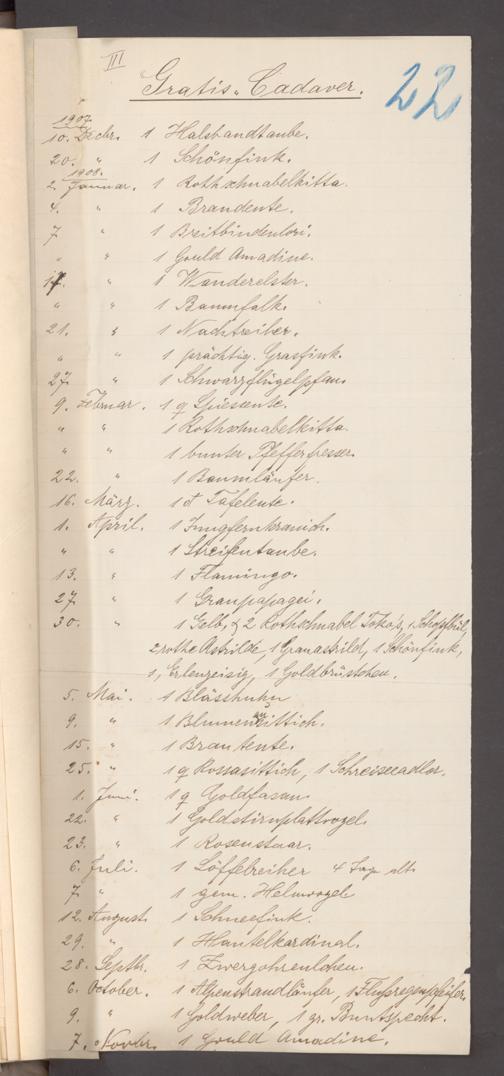 III
Gratis-Cadaver.
22
1907.
10. Decbr. 1 Halsbandtaube.
20. " 1 Schönfink.
1908.
2. Januar. 1 Rothschnabelkitta.
4. " 1 Brandente.
7 " 1 Breitbindenlori.
" " 1 Gould Amadine.
17. " 1 Wanderelster.
" " 1 Baumfalk.
21. " 1 Nachtreiher.
" " 1 prächtig. Grasfink.
27. " 1 Schwarzflügelpfau.
9. Februar. 1 ♀ Spiessente.
" " 1 Rothschnabelkitta.
" " 1 bunter Pfefferfresser.
22. " 1 Baumläufer.
16. März. 1 ♂ Tafelente.
1. April. 1 Jungfernkranich.
" " 1 Streifentaube.
13. " 1 Flamingo.
27. " 1 Graupapagei.
30. " 1 Gelb, & 2 Rothschnabel Toko's, 1
2 rothe Astrilde, 1 Granastrild, 1 Schönfink,
1, Erlenzeisig, 1 Goldbrüstchen.
5. Mai. 1 Blässhuhn
9. " 1 Blumensittich.
15. " 1 Brautente.
25. " 1 ♀ Rosasittich, 1 Schreiseeadler.
1. Juni. 1 ♀ Goldfasan.
22. " 1 Goldstirnplattvogel.
23. " 1 Rosenstaar.
6. Juli. 1 Löffelreiher 4 Tage alt.
7. " 1 gem. Helmvogel.
12. August. 1 Schneefink.
29. " 1 Mantelkardinal.
28. Septbr. 1 Zwergohreulchen.
6. October. 1 Alpenstrandläufer, 1 Flussregenpfeifer.
9. " 1 Goldweber, 1 gr. Buntspecht.
7. Novbr. 1 Gould Amadine.